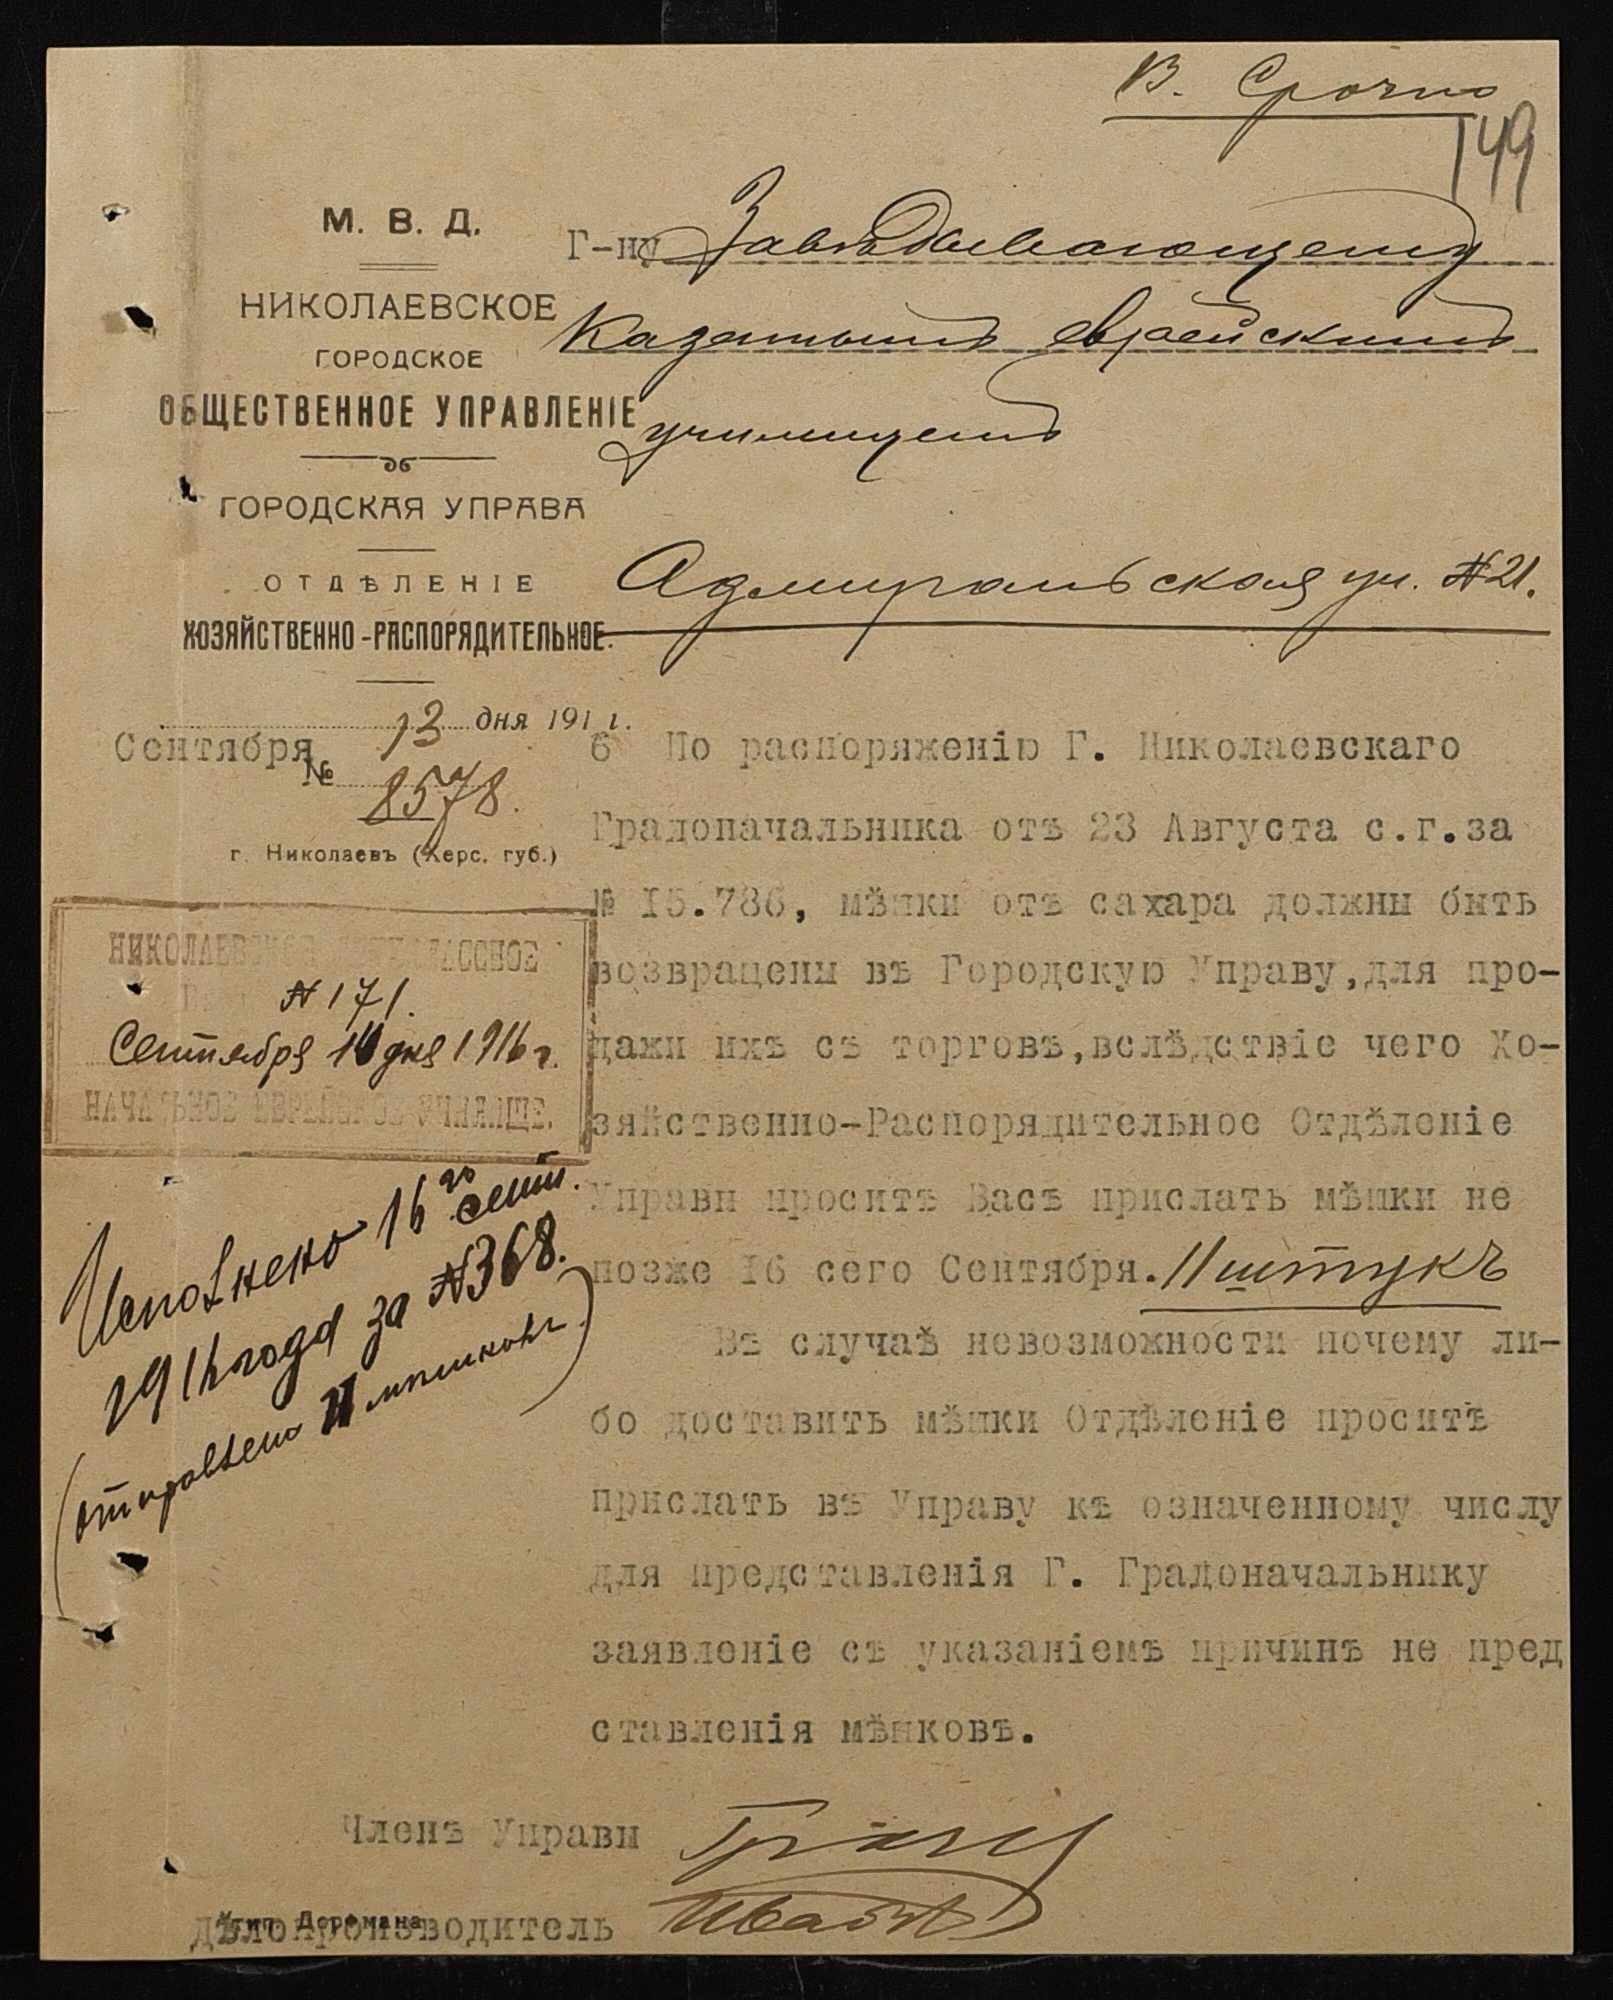 В. Срочно
149
М. В. Д.
НИКОЛАЕВСКОЕ
ГОРОДСКОЕ
ОБЩЕСТВЕННОЕ УПРАВЛЕНІЕ
ГОРОДСКАЯ УПРАВА
ОТДѢЛЕНІЕ
ХОЗЯЙСТВЕННО-РАСПОРЯДИТЕЛЬНОЕ.
13 дня 191 г.
Сентября
№ 8578.
г. Николаевъ (Херс. губ.)
Г-ну Завѣдывающему
Казеннымъ еврейскимъ
училищемъ
Адмиральская ул. № 21.
6 По распоряженію Г. Николаевскаго
Градоначальника отъ 23 Августа с.г.за
№ 15.786, мѣшки отъ сахара должны быть
возвращены въ Городскую Управу,для про-
дажи ихъ съ торговъ,вслѣдствіе чего Хо-
зяйственно-Распорядительное Отдѣленіе
Управы проситъ Васъ прислать мѣшки не
позже 16 сего Сентября. 11 штукъ
Въ случаѣ невозможности почему ли-
бо доставить мѣшки Отдѣленіе проситъ
прислать въ Управу къ означенному числу
для представленія Г. Градоначальнику
заявленіе съ указаніемъ причинъ не пред
ставленія мѣшковъ.
НИКОЛАЕВСКОЕ
№ 171.
Сентября 16 дня 1916 г.
НАЧАЛЬНОЕ ЕВРЕЙСКОЕ УЧИЛИЩЕ.
Исполнено 16го сент.
1916 года за № 368.
(отправлено 11 мѣшковъ)
Членъ Управы
Дѣлопроизводитель
Тип. Дормана